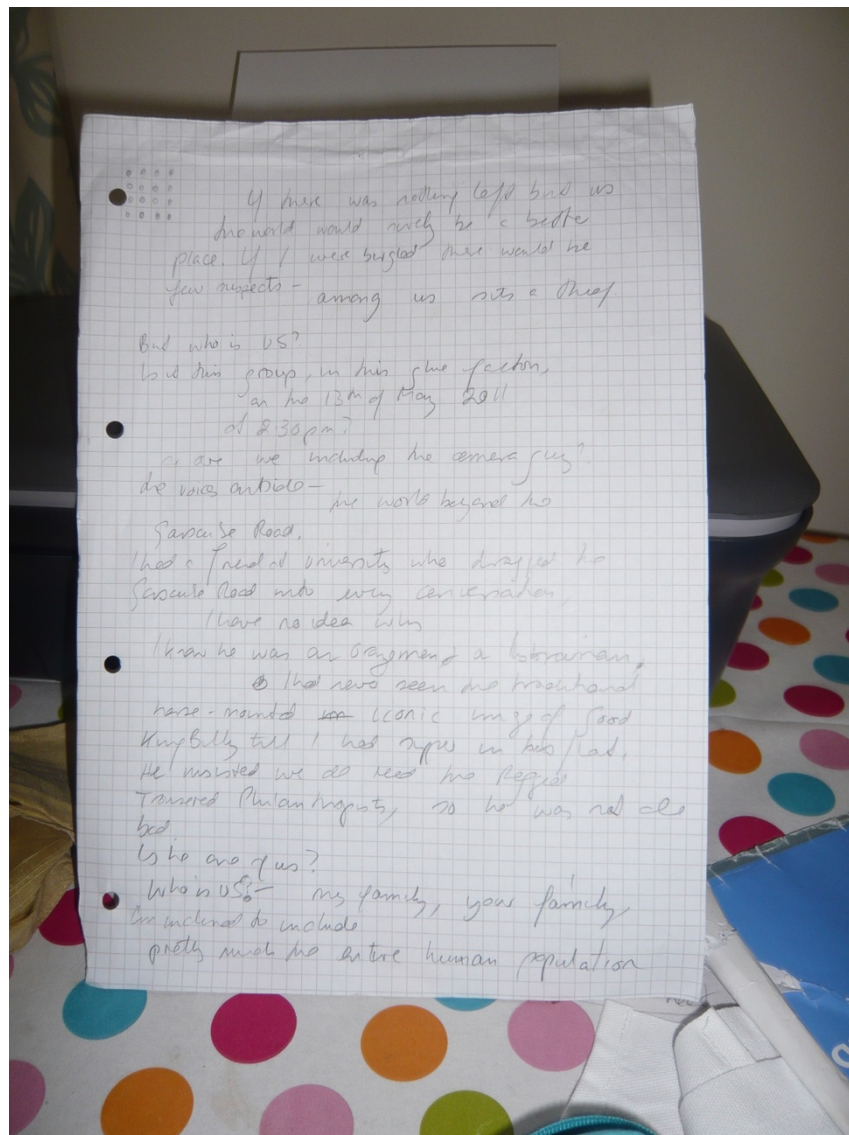 If there was nothing left but us
the world would surely be a better
place. If I were burgled there would be
few suspects - among us sits a thief
But who is US?
Is it this group, in this glue factory,
on the 13th of May 2011
at 2.30pm?
or are we including the camera guy?
the voices outside -
the world beyond the
Garscube Road.
I had a friend at University who dragged the
Garscube Road into every conversation,
I have no idea why
I know he was an Orangeman & a librarian,
I had never seen the
horse-mounted iconic image of Good
King Billy till I had supper in his flat.
He insisted we all read the Ragged
Trousered Philanthropists, so he was not all
bad.
Is he one of us?
Who is US? - my family, your family,
I'm inclined to include
pretty much the entire human population